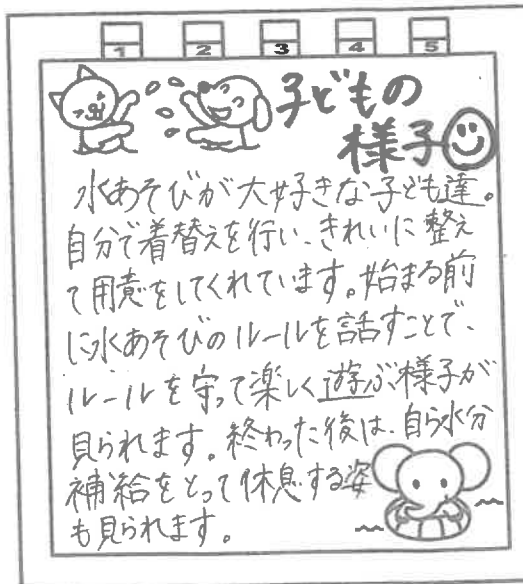 1 2 3 4 5
子どもの
様子
水あそびが大好きな子ども達。
自分で着替えを行い、きれいに整え
て用意をしてくれています。始まる前
に水あそびのルールを話すことで、
ルールを守って楽しく遊ぶ様子が
見られます。終わった後は、自ら水分
補給をとって休息する姿
も見られます。